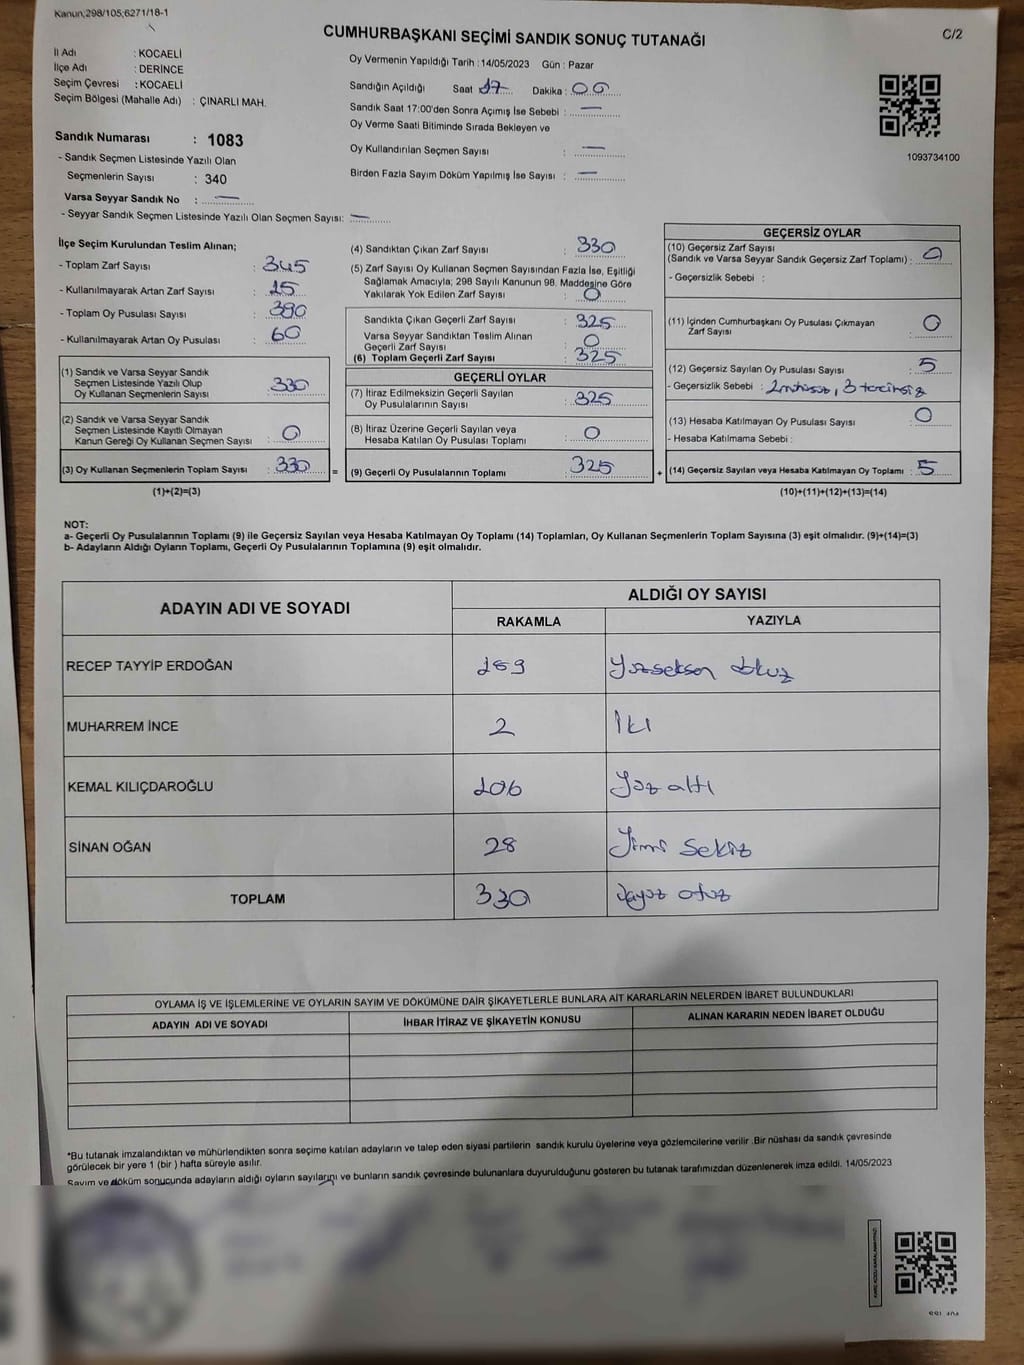 Kanun;298/105;6271/18-1
CUMHURBAŞKANI SEÇİMİ SANDIK SONUÇ TUTANAĞI
C/2
İl Adı : KOCAELİ
İlçe Adı : DERİNCE
Seçim Çevresi : KOCAELİ
Seçim Bölgesi (Mahalle Adı) : ÇINARLI MAH.
Sandık Numarası : 1083
- Sandık Seçmen Listesinde Yazılı Olan
Seçmenlerin Sayısı : 340
Varsa Seyyar Sandık No : —
- Seyyar Sandık Seçmen Listesinde Yazılı Olan Seçmen Sayısı: —
Oy Vermenin Yapıldığı Tarih : 14/05/2023 Gün : Pazar
Sandığın Açıldığı Saat 17 Dakika : 00
Sandık Saat 17:00'den Sonra Açımış İse Sebebi : —
Oy Verme Saati Bitiminde Sırada Bekleyen ve
Oy Kullandırılan Seçmen Sayısı : —
Birden Fazla Sayım Döküm Yapılmış İse Sayısı : —
1093734100
İlçe Seçim Kurulundan Teslim Alınan;
- Toplam Zarf Sayısı : 345
- Kullanılmayarak Artan Zarf Sayısı : 15
- Toplam Oy Pusulası Sayısı : 390
- Kullanılmayarak Artan Oy Pusulası : 60
(1) Sandık ve Varsa Seyyar Sandık
Seçmen Listesinde Yazılı Olup
Oy Kullanan Seçmenlerin Sayısı : 330
(2) Sandık ve Varsa Seyyar Sandık
Seçmen Listesinde Kayıtlı Olmayan
Kanun Gereği Oy Kullanan Seçmen Sayısı : 0
(3) Oy Kullanan Seçmenlerin Toplam Sayısı : 330 =
(1)+(2)=(3)
(4) Sandıktan Çıkan Zarf Sayısı : 330
(5) Zarf Sayısı Oy Kullanan Seçmen Sayısından Fazla İse, Eşitliği
Sağlamak Amacıyla; 298 Sayılı Kanunun 98. Maddesine Göre
Yakılarak Yok Edilen Zarf Sayısı : 0
Sandıkta Çıkan Geçerli Zarf Sayısı : 325
Varsa Seyyar Sandıktan Teslim Alınan
Geçerli Zarf Sayısı : 0
(6) Toplam Geçerli Zarf Sayısı : 325
GEÇERLİ OYLAR
(7) İtiraz Edilmeksizin Geçerli Sayılan
Oy Pusulalarının Sayısı : 325
(8) İtiraz Üzerine Geçerli Sayılan veya
Hesaba Katılan Oy Pusulası Toplamı : 0
(9) Geçerli Oy Pusulalarının Toplamı : 325 +
GEÇERSİZ OYLAR
(10) Geçersiz Zarf Sayısı
(Sandık ve Varsa Seyyar Sandık Geçersiz Zarf Toplamı) : 0
- Geçersizlik Sebebi :
(11) İçinden Cumhurbaşkanı Oy Pusulası Çıkmayan
Zarf Sayısı : 0
(12) Geçersiz Sayılan Oy Pusulası Sayısı : 5
- Geçersizlik Sebebi : 2 mühürsüz, 3 tercihsiz
(13) Hesaba Katılmayan Oy Pusulası Sayısı : 0
- Hesaba Katılmama Sebebi :
(14) Geçersiz Sayılan veya Hesaba Katılmayan Oy Toplamı : 5
(10)+(11)+(12)+(13)=(14)
NOT:
a- Geçerli Oy Pusulalarının Toplamı (9) ile Geçersiz Sayılan veya Hesaba Katılmayan Oy Toplamı (14) Toplamları, Oy Kullanan Seçmenlerin Toplam Sayısına (3) eşit olmalıdır. (9)+(14)=(3)
b- Adayların Aldığı Oyların Toplamı, Geçerli Oy Pusulalarının Toplamına (9) eşit olmalıdır.
ADAYIN ADI VE SOYADI
ALDIĞI OY SAYISI
RAKAMLA YAZIYLA
RECEP TAYYİP ERDOĞAN 189 Yüzseksen dokuz
MUHARREM İNCE 2 İki
KEMAL KILIÇDAROĞLU 106 Yüz altı
SİNAN OĞAN 28 Yirmi Sekiz
TOPLAM 330 üçyüz otuz
OYLAMA İŞ VE İŞLEMLERİNE VE OYLARIN SAYIM VE DÖKÜMÜNE DAİR ŞİKAYETLERLE BUNLARA AİT KARARLARIN NELERDEN İBARET BULUNDUKLARI
ADAYIN ADI VE SOYADI İHBAR İTİRAZ VE ŞİKAYETİN KONUSU ALINAN KARARIN NEDEN İBARET OLDUĞU
*Bu tutanak imzalandıktan ve mühürlendikten sonra seçime katılan adayların ve talep eden siyasi partilerin sandık kurulu üyelerine veya gözlemcilerine verilir .Bir nüshası da sandık çevresinde
görülecek bir yere 1 (bir ) hafta süreyle asılır.
Sayım ve döküm sonucunda adayların aldığı oyların sayılarını ve bunların sandık çevresinde bulunanlara duyurulduğunu gösteren bu tutanak tarafımızdan düzenlenerek imza edildi. 14/05/2023